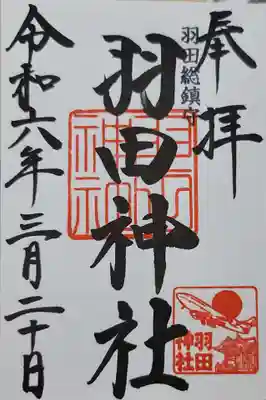 奉拝
羽田総鎮守
羽田神社
羽田神社
令和六年三月二十日
羽田
神社